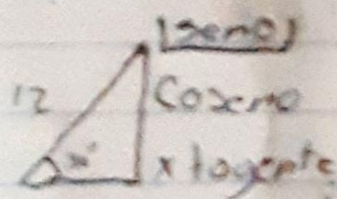 |seno|
12 Coseno
x tagente